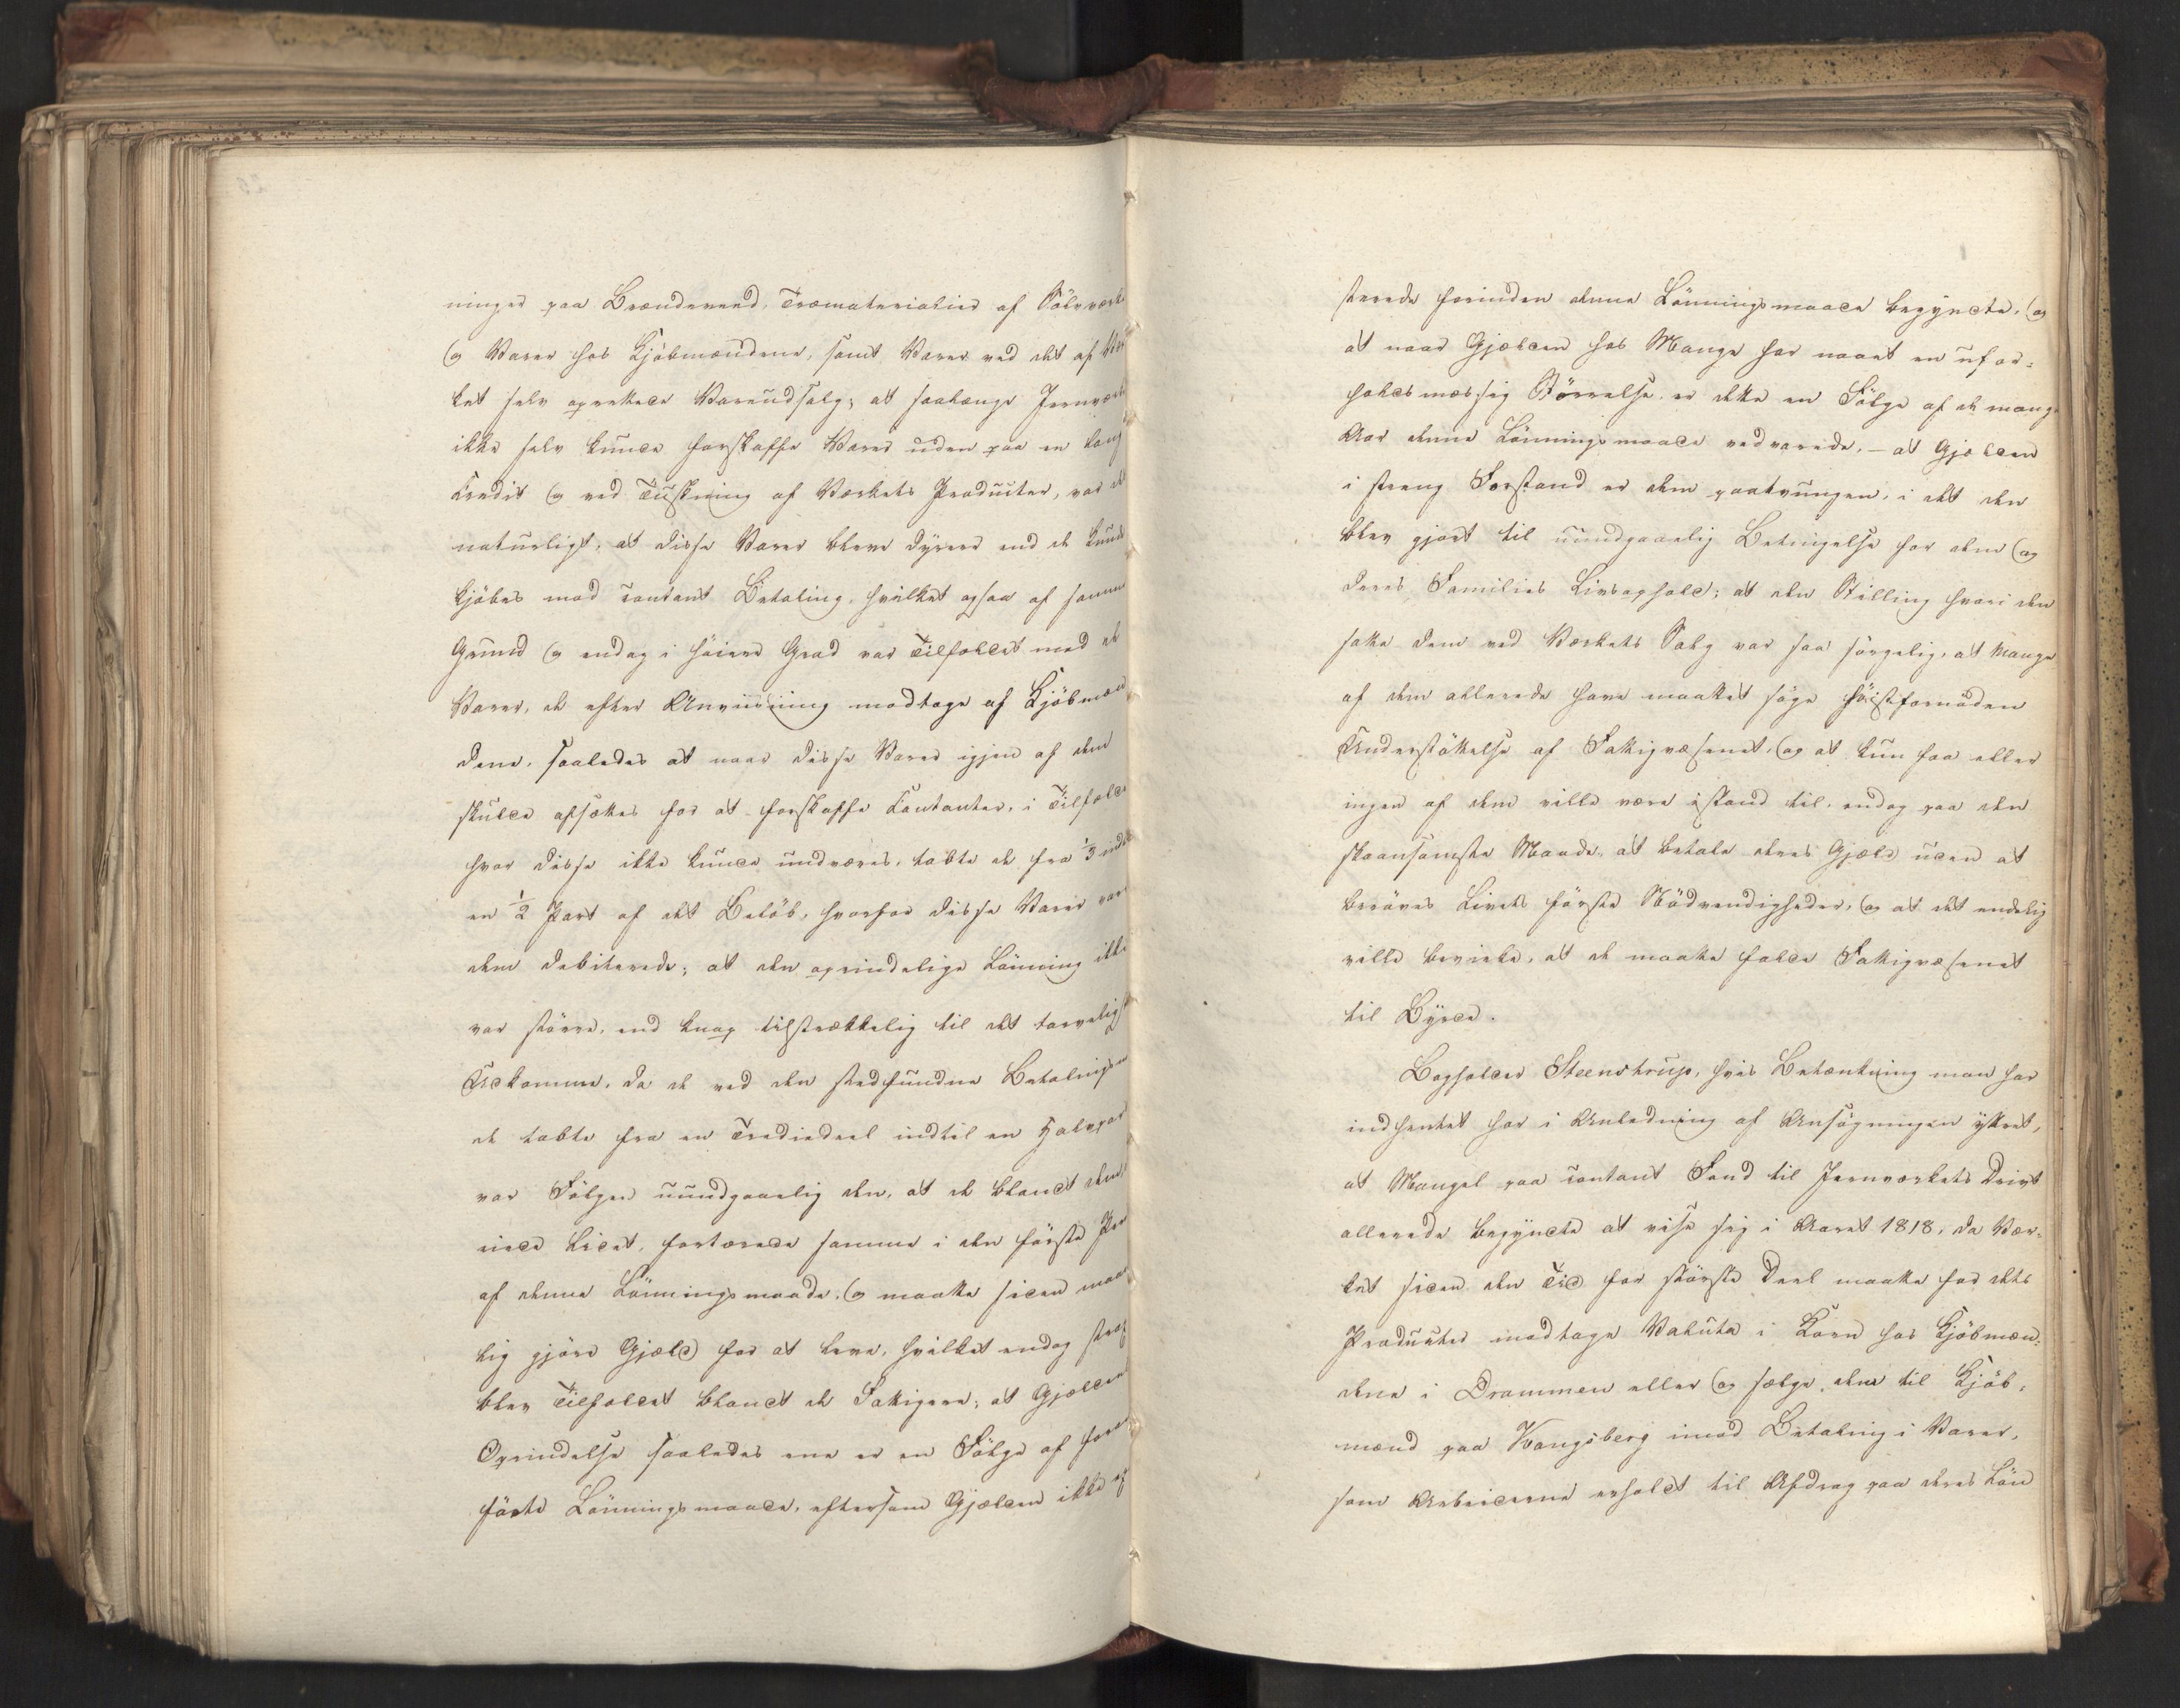 ninger paa Brændeveed, Træmaterialier af Sölvværk
og Varer hos Kjöbmændene, samt Varer ved det af Vær
ket selv oprettede Vareudsalg; at saalænge Jernværk
ikke selv kunde forskaffe Varer uden paa en lang
Credit og ved Tuskning af Værkets Producter, var d
naturligt, at disse Varer bleve dyrere end de kund
kjöbes mod contant Betaling, hvilket ogsaa af samm
Grund og endog i höiere Grad var Tilfældet med de
Varer, de efter Anviisning modtoge af Kjöbmæn
dene, saaledes at naar disse Varer igjen af dem
skulde afsættes for at forskaffe Contanter, i Tilfælde
hvor disse ikke kunde undværes, tabte de fra 1/3 indt
en 1/2 Part af det Belöb, hvorfor disse Varer vare
dem debiterede; at den oprindelige Lönning ikke
var större, end knap tilstrækkelig til det tarveligs
Udkomme, da de ved den stedfundne Betalingsm
de tabte fra en Trediedeel indtil en Halvpar
var Fölgen uundgaaelig den, at de blandt dem,
eiede Lidet, fortærede samme i den förste Per
af denne Lönningsmaade, og maatte siden maa
lig gjöre Gjæld for at leve, hvilket endog strax
blev Tilfældet blandt de Fattigere; at Gjælden
Oprindelse saaledes ene er en Fölge af foran
förte Lönningsmaade, eftersom Gjælden ikke ex
sterede forinden denne Lönningsmaade begyndte, og
at naar Gjælden hos Mange har naaet en ufor-
holdsmæssig Störrelse, er dette en Fölge af de mange
Aar denne Lönningsmaade vedvarede, - at Gjælden
i streng Forstand er dem paatvungen, i det den
blev gjort til uundgaaelig Betingelse for dem og
deres Families Livsophold; at den Stilling hvori den
satte dem ved Værkets Salg var saa sörgelig, at Mange
af dem allerede have maattet söge höistfornöden
Understöttelse af Fattigvæsenet, og at kun faa eller
ingen af dem ville være istand til, endog paa den
skaansomste Maade, at betale deres Gjæld uden at
beröves Livets förste Nödvendigheder, og at det endelig
ville bevirke, at de maatte falde Fattigvæsenet
til Byrde.
Bogholder Steenstrup, hvis Betænkning man har
indhentet har i Anledning af Ansögningen yttret,
at Mangel paa contant Fond til Jernværkets Drivt
allerede begyndte at vise sig i Aaret 1818, da Vær-
ket siden den Tid for störste Deel maatte for dets
Producter modtage Valuta i Korn hos Kjöbmæn-
dene i Drammen eller og sælge dem til Kjöb-
mænd paa Kongsberg imod Betaling i Varer,
som Arbeiderne erholdt til Afdrag paa deres Lön